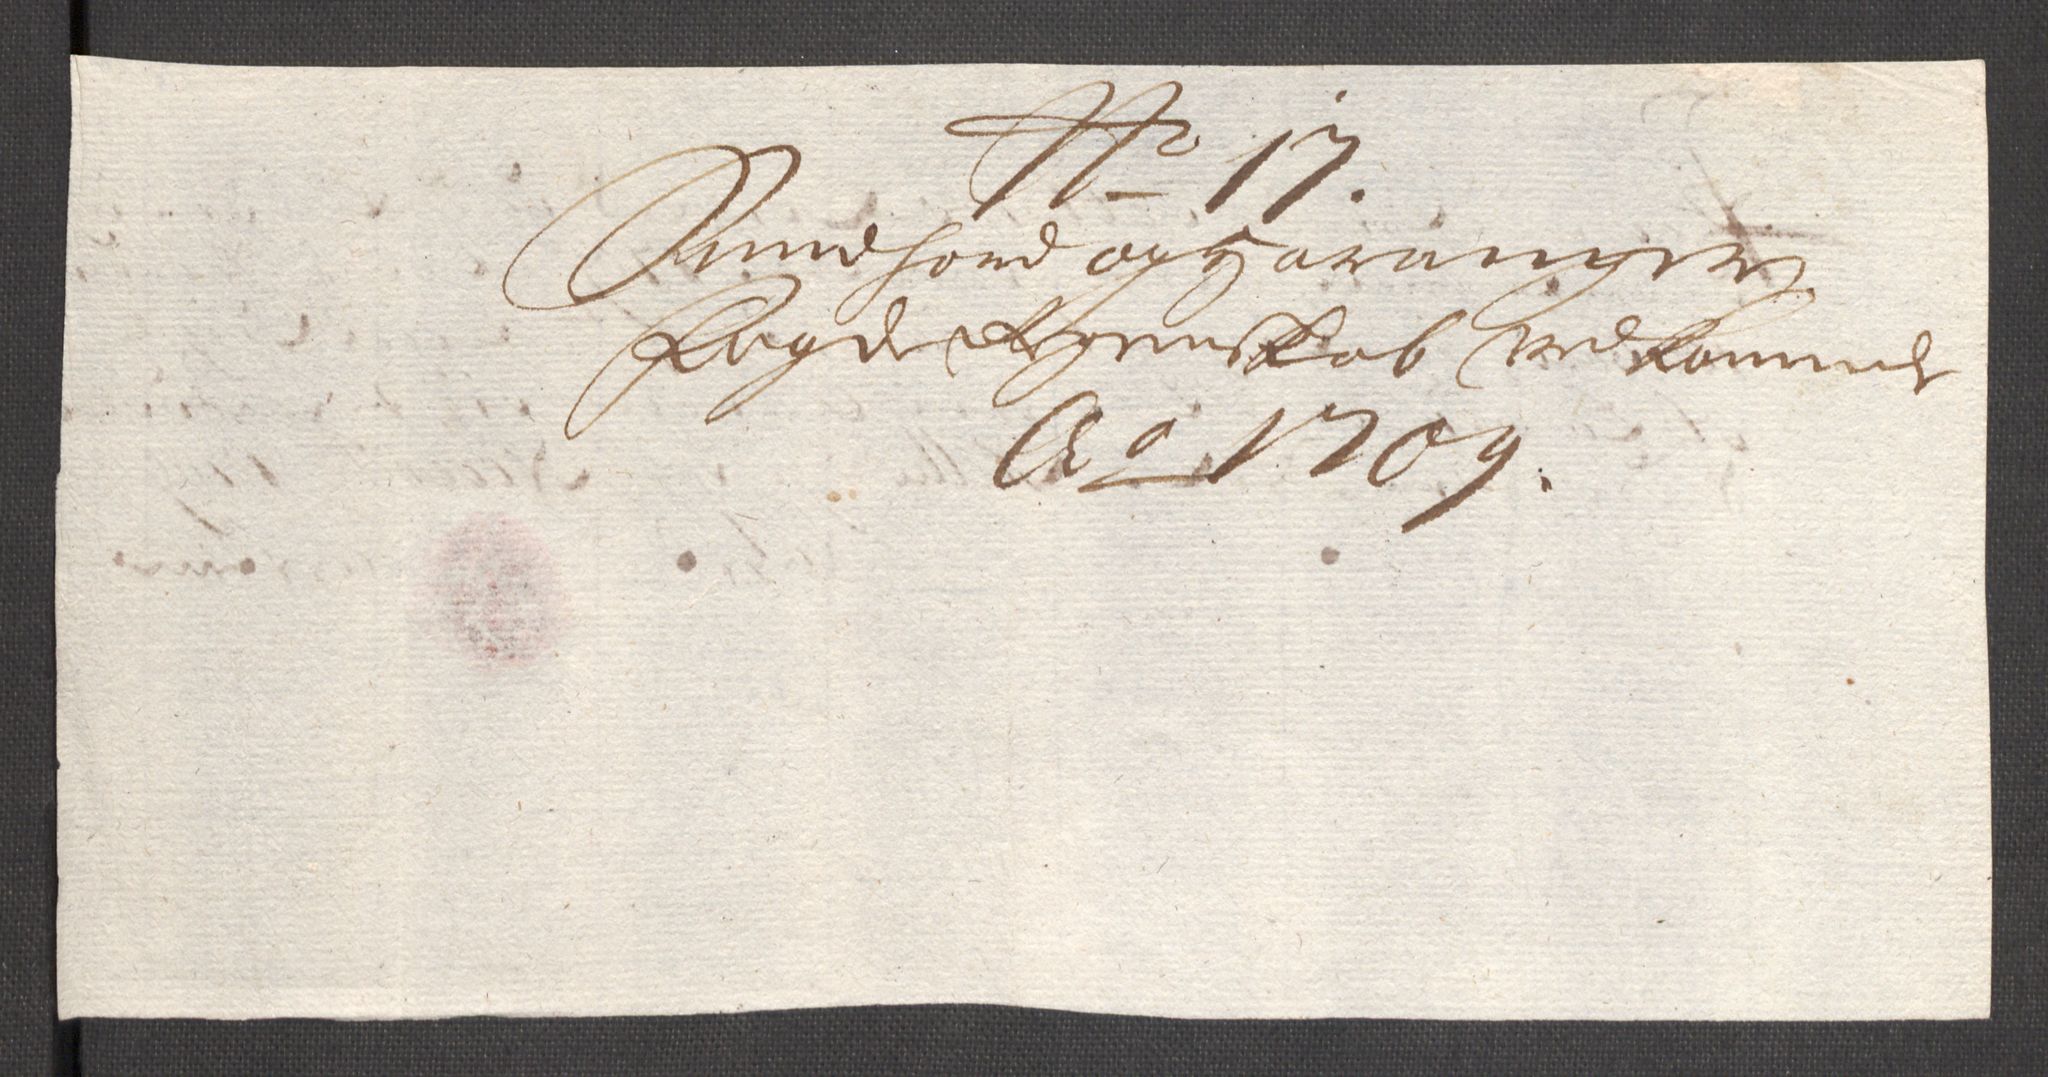 No 17.
Sundhord og Hardanger
Fogderi Regenskab Vedkommende
Ao 1709.